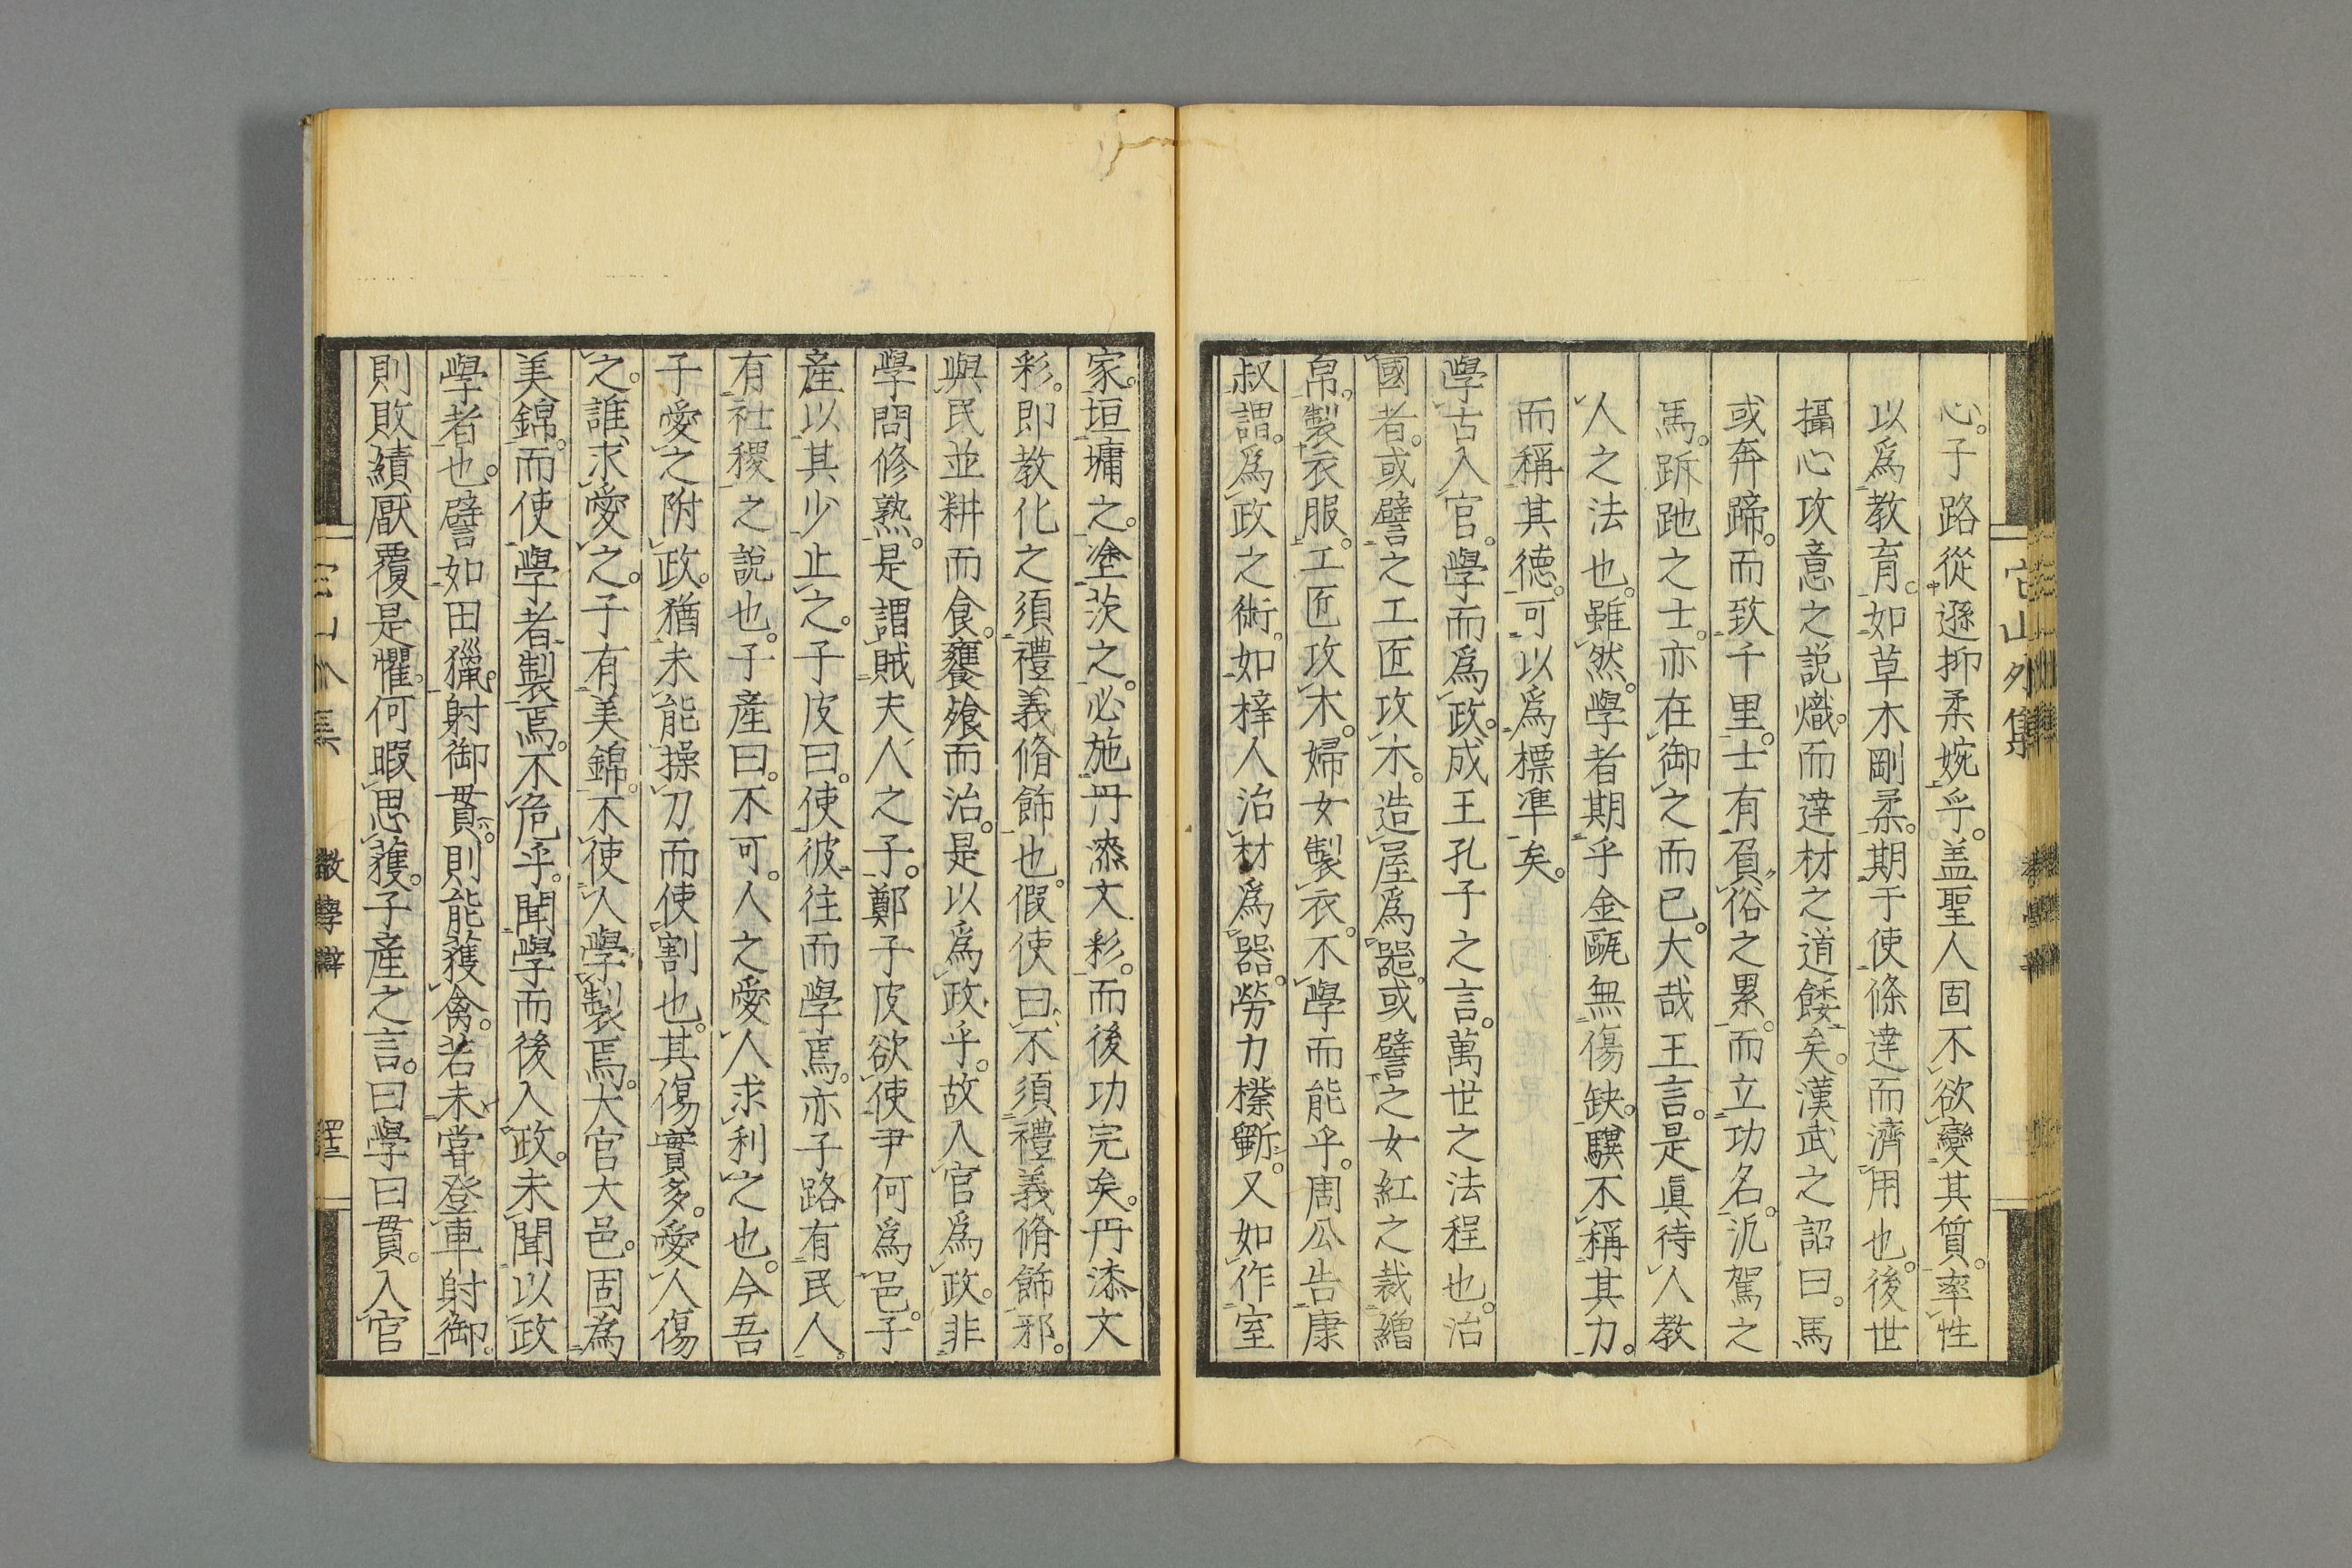 它山外集
心。子路從遜抑柔婉乎。盖聖人固不欲變其質。率性
以爲教育。如草木剛柔。期于使條達而濟用也。後世
攝心攻意之説熾。而達材之道餧矣。漢武之詔曰。馬
或奔蹄。而致千里。士有負俗之累。而立功名。泛駕之
馬。跅跑之士。亦在御之而已。大哉王言。是眞待人教
人之法也。雖然。學者期乎金甌無傷缺。驥不稱其力。
而稱其德。可以爲標準矣。
學古入官。學而爲政。成王孔子之言。萬世之法程也。治
國者。或譬之工匠攻木。造屋爲器。或譬之女紅之裁繒
帛。製衣服。工匠攻木。婦女製衣。不學而能乎。周公告康
叔謂。爲政之術。如梓人治材爲器。勞力樸斵。又如作室
家。垣墉之。塗茨之。必施丹漆文彩。而後功完矣。丹漆文
彩。即教化之須禮義脩飾也。假使曰不須禮義脩飾邪。
與民並耕而食。饔飧而治。是以爲政乎。故入官爲政。非
學問修熟。是謂賊夫人之子。鄭子皮欲使尹何爲邑。子
産以其少止之。子皮曰。使彼往而學焉。亦子路有民人。
有社稷之説也。子産曰。不可。人之愛人求利之也。今吾
子愛之附政。猶未能操刀而使割也。其傷實多。愛人傷
之。誰求愛之。子有美錦。不使人學製焉。大官大邑。固為
美錦。而使學者製焉。不危乎。聞學而後入政。未聞以政
學者也。譬如田獵。射御貫。則能獲禽。若未嘗登車射御。
則敗績厭覆是懼。何暇思獲。子産之言。曰學曰貫。入官